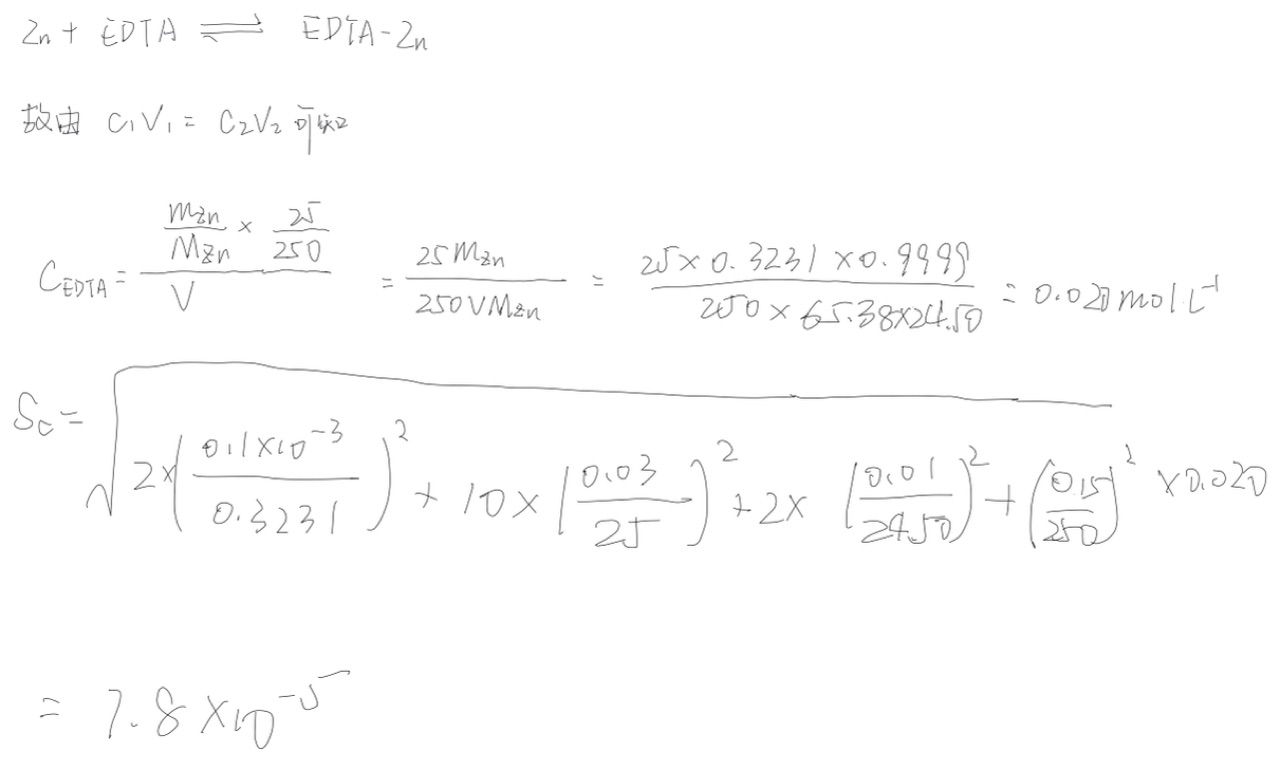 Zn + EDTA ⇌ EDTA-Zn
故由 C₁V₁ = C₂V₂ 可知
C_EDTA = (m_Zn/M_Zn × 25/250)/V = 25 m_Zn/(250 V M_Zn) = (25 × 0.3231 × 0.9999)/(250 × 65.38 × 24.50) = 0.020 mol·L⁻¹
S_C = √(2×(0.1×10⁻³/0.3231)² + 10×(0.03/25)² + 2×(0.01/24.50)² + (0.15/250)²) × 0.020
= 7.8 × 10⁻⁵